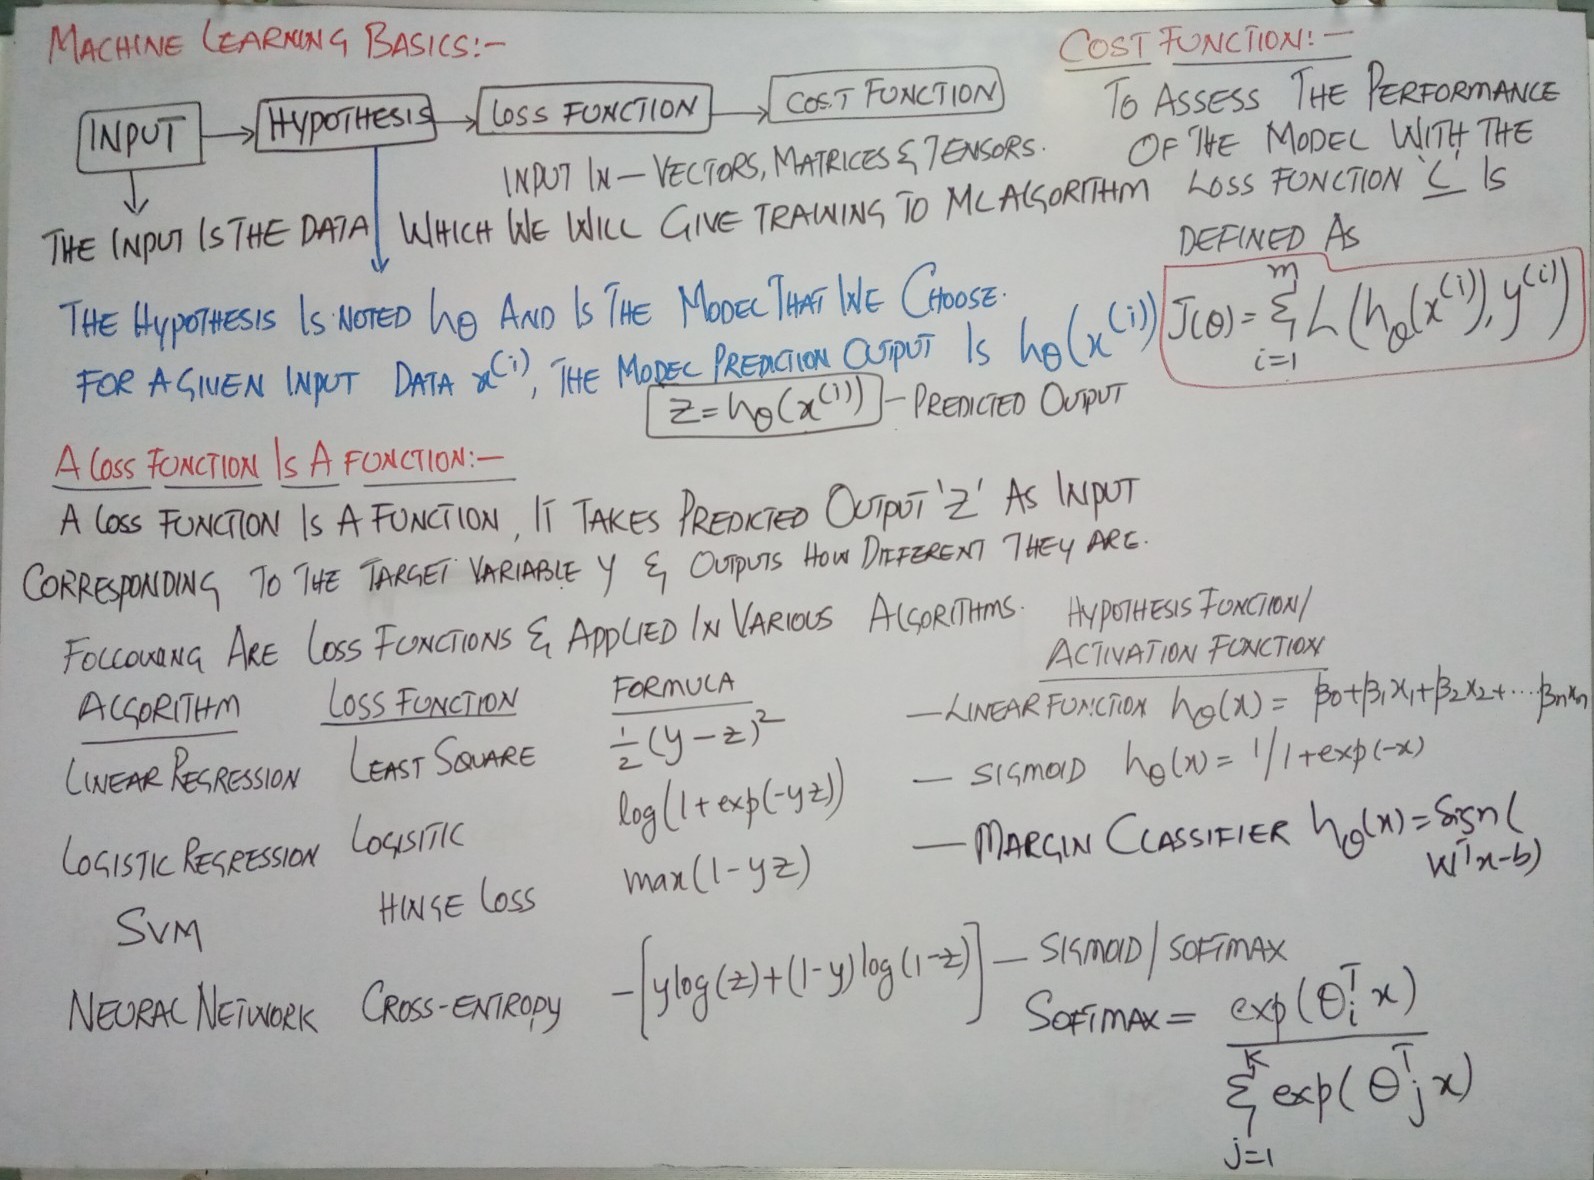 MACHINE LEARNING BASICS:-
INPUT → HYPOTHESIS → LOSS FUNCTION → COST FUNCTION
INPUT IN — VECTORS, MATRICES & TENSORS.
THE INPUT IS THE DATA WHICH WE WILL GIVE TRAINING TO ML ALGORITHM
THE HYPOTHESIS IS NOTED hθ AND IS THE MODEL THAT WE CHOOSE.
FOR A GIVEN INPUT DATA x^(i), THE MODEL PREDICTION OUTPUT IS hθ(x^(i))
z = hθ(x^(i)) - PREDICTED OUTPUT
COST FUNCTION:-
TO ASSESS THE PERFORMANCE
OF THE MODEL WITH THE
LOSS FUNCTION 'L' IS
DEFINED AS
J(θ) = Σ_{i=1}^{m} L(hθ(x^(i)), y^(i))
A LOSS FUNCTION IS A FUNCTION:-
A LOSS FUNCTION IS A FUNCTION, IT TAKES PREDICTED OUTPUT 'Z' AS INPUT
CORRESPONDING TO THE TARGET VARIABLE Y & OUTPUTS HOW DIFFERENT THEY ARE.
FOLLOWING ARE LOSS FUNCTIONS & APPLIED IN VARIOUS ALGORITHMS.
HYPOTHESIS FUNCTION/
ACTIVATION FUNCTION
ALGORITHM LOSS FUNCTION FORMULA
LINEAR REGRESSION LEAST SQUARE 1/2 (y-z)² — LINEAR FUNCTION hθ(x) = β0+β1x1+β2x2+...βnxn
LOGISTIC REGRESSION LOGISITIC log(1+exp(-yz)) — SIGMOID hθ(x) = 1/1+exp(-x)
SVM HINGE LOSS max(1-yz) — MARGIN CLASSIFIER hθ(x) = Sign(
W^T x-b)
NEURAL NETWORK CROSS-ENTROPY -[ylog(z)+(1-y)log(1-z)] — SIGMOID/SOFTMAX
SOFTMAX = exp(θ_i^T x) / Σ_{j=1}^{K} exp(θ_j^T x)